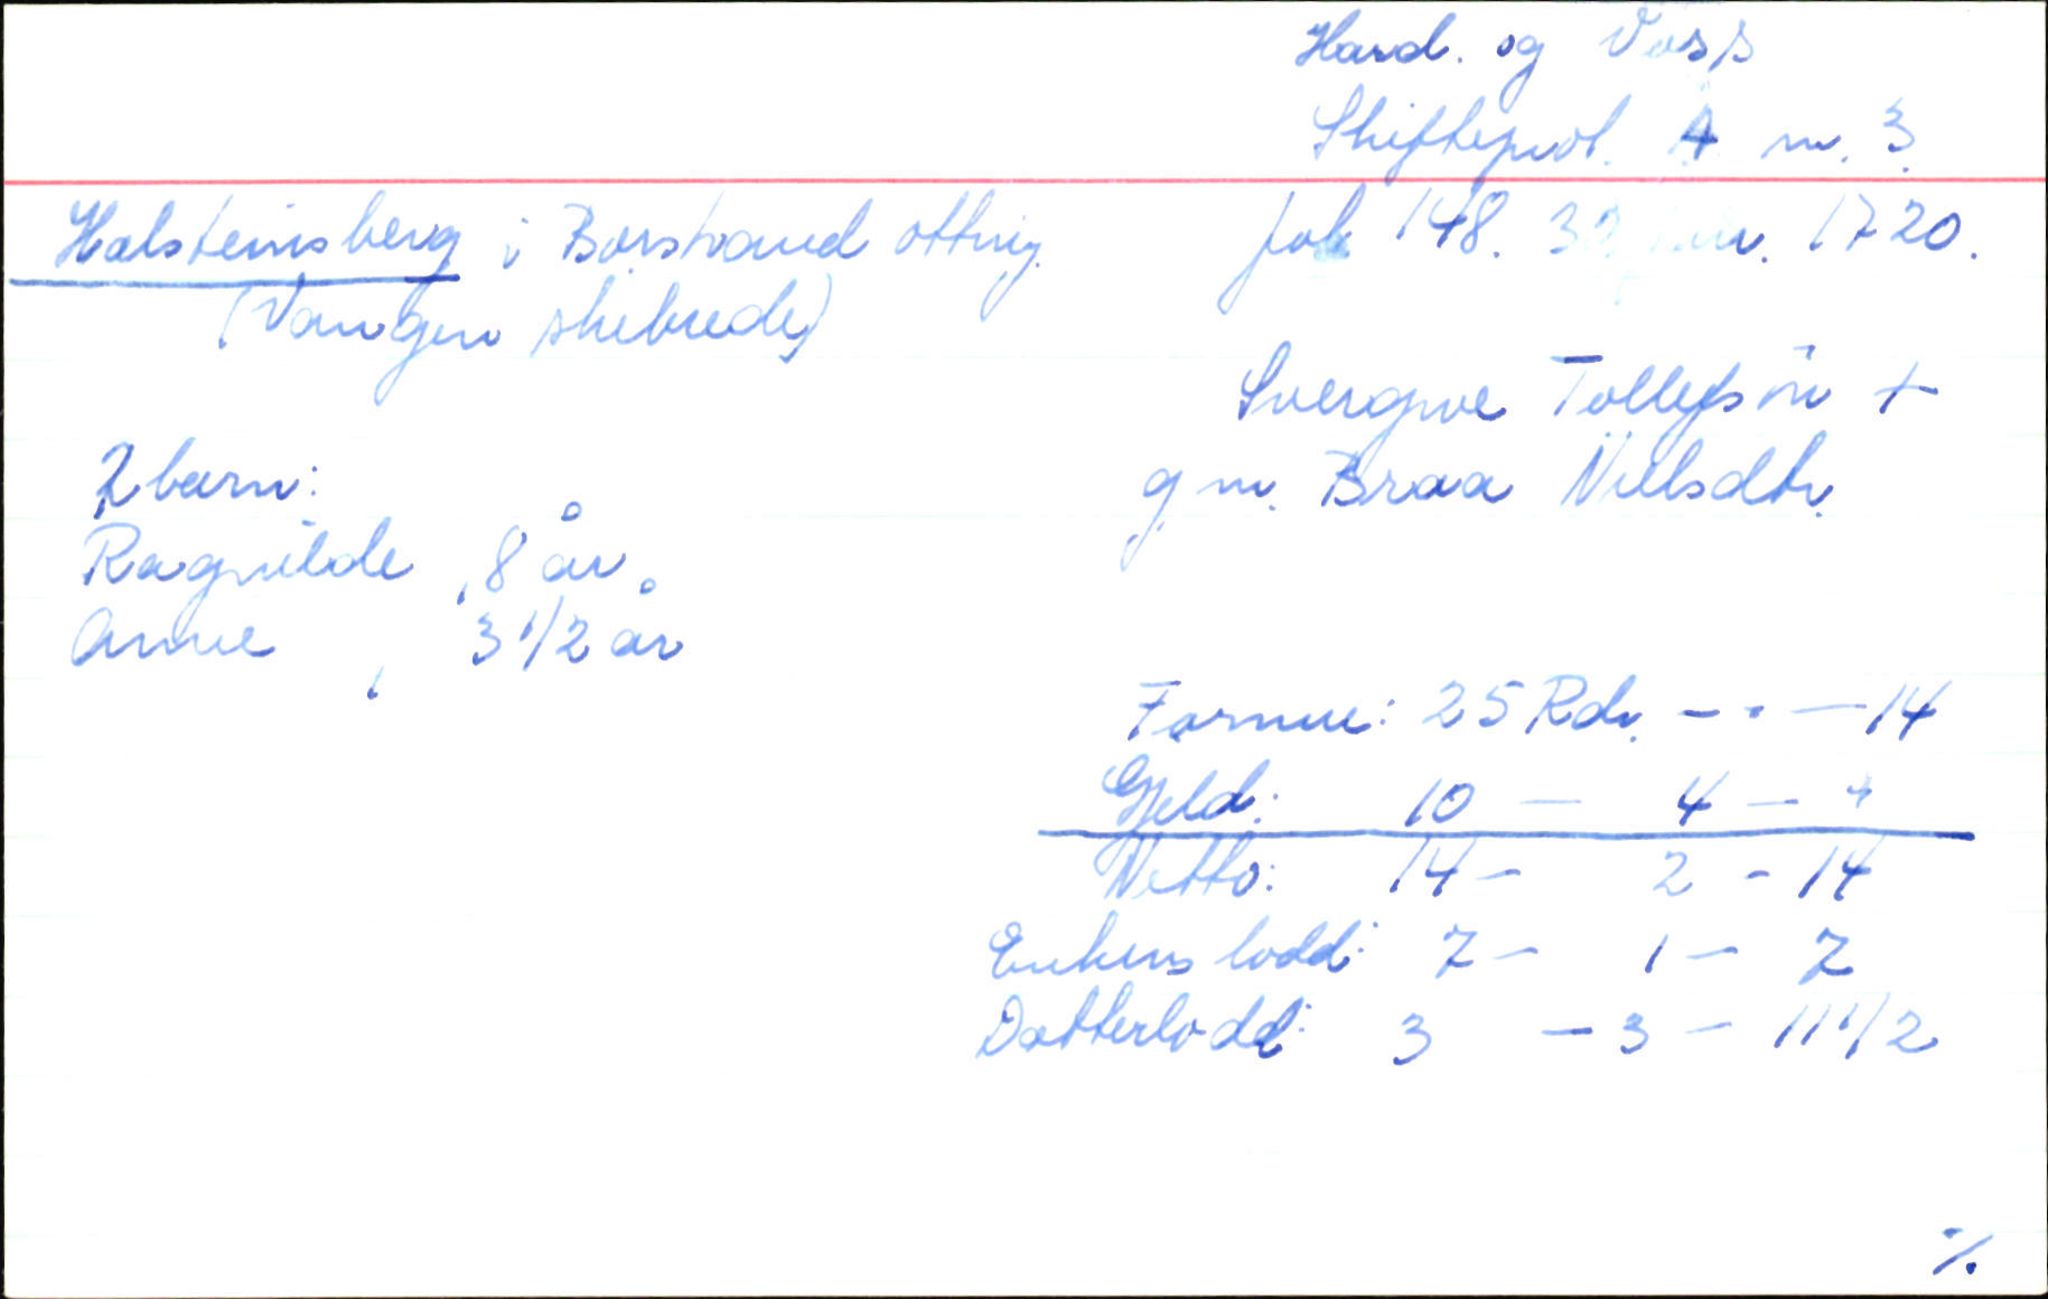 Hard. og Voss
Skifteprot. A nr. 3
Halsteinsberg i Borstrand ottnig. fol 148. 1720.
(Vangen skibrede)
Svergve Tollefsøn +
g.m. Braa Nielsdtr.
2 barn:
Ragnilde, 8 år.
Anne, 3 1/2 år
Formue: 25 Rdr. - - - 14
Gjeld: 10 - 4 - "
Netto: 14 - 2 - 14
Enkens lodd: 7 - 1 - 7
Dotterlodd: 3 - 3 - 11 1/2
./.